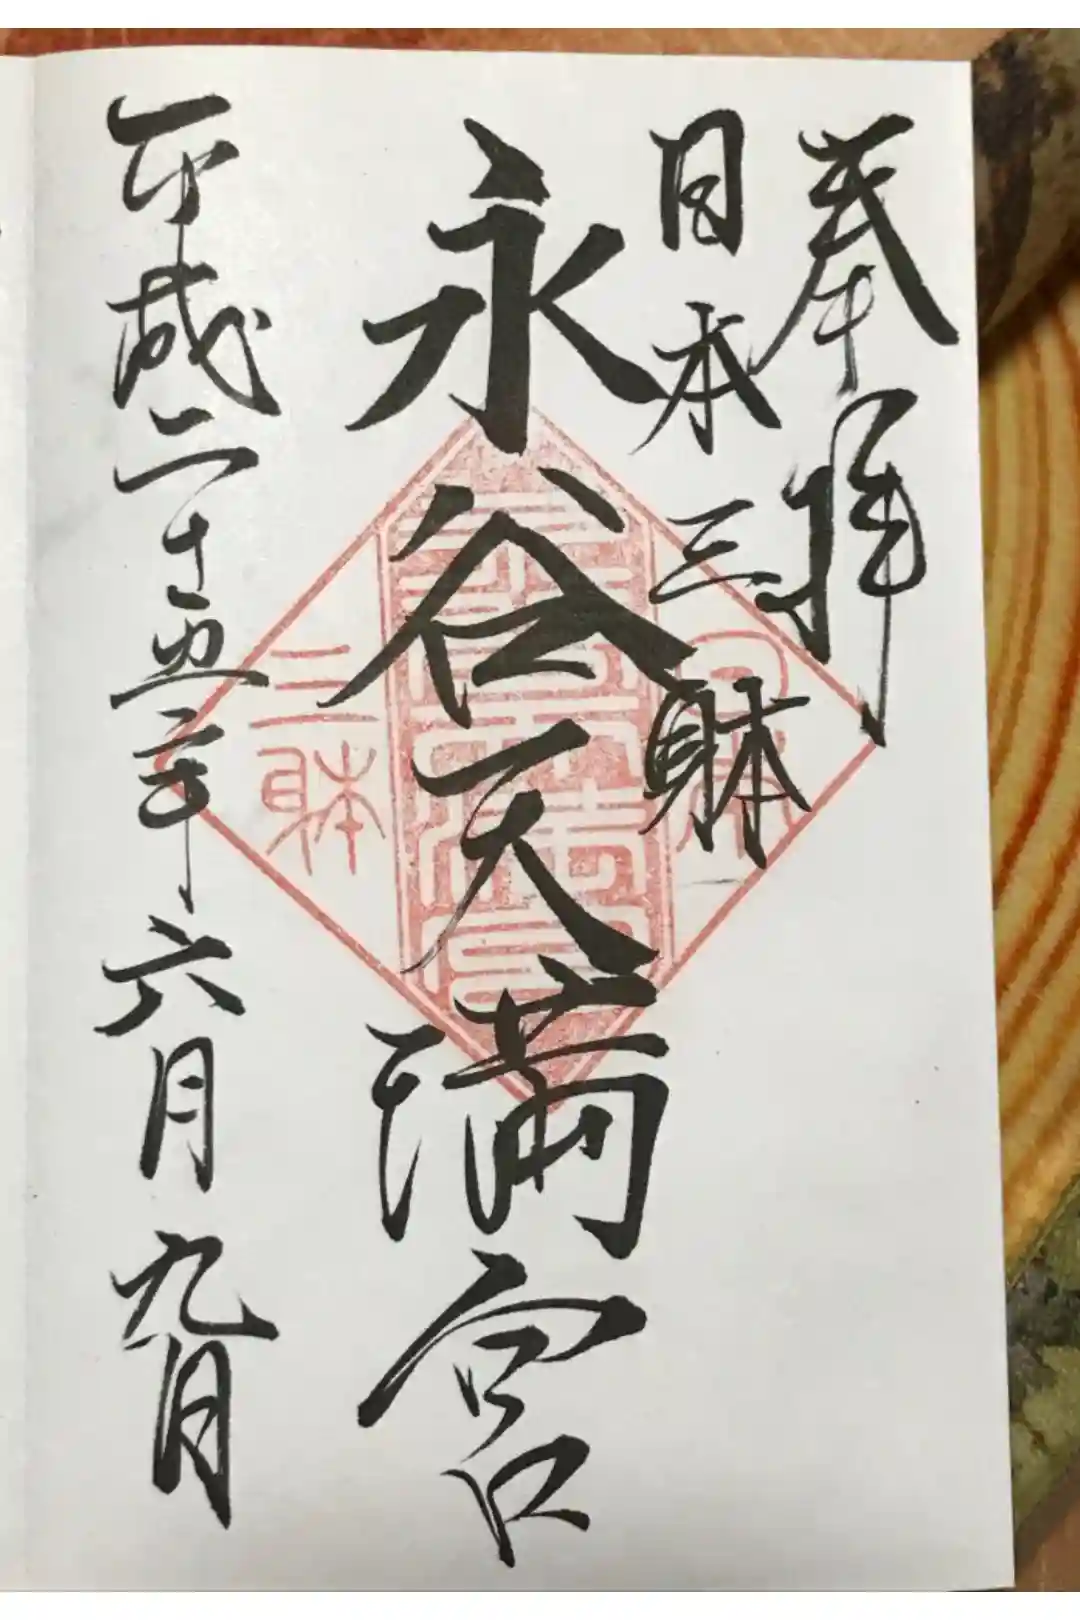 奉拝
日本三躰
永谷天満宮
平成二十五年六月九日
三躰